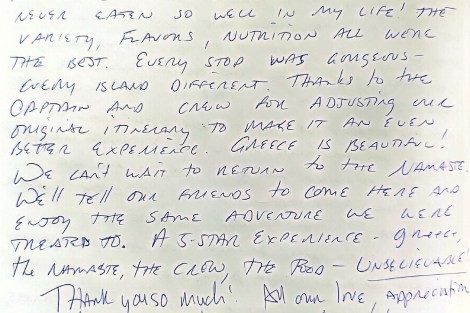 NEVER EATEN SO WELL IN MY LIFE! THE
VARIETY, FLAVORS, NUTRITION ALL WERE
THE BEST. EVERY STOP WAS GORGEOUS -
EVERY ISLAND DIFFERENT. THANKS TO THE
CAPTAIN AND CREW FOR ADJUSTING OUR
ORIGINAL ITINERARY TO MAKE IT AN EVEN
BETTER EXPERIENCE. GREECE IS BEAUTIFUL!
WE CAN'T WAIT TO RETURN TO THE NAMASTE.
WE'LL TELL OUR FRIENDS TO COME HERE AND
ENJOY THE SAME ADVENTURE WE WERE
TREATED TO. A 5-STAR EXPERIENCE - GREECE,
THE NAMASTE, THE CREW, THE FOOD - UNBELIEVABLE!
THANK YOU SO MUCH! All our love, appreciation